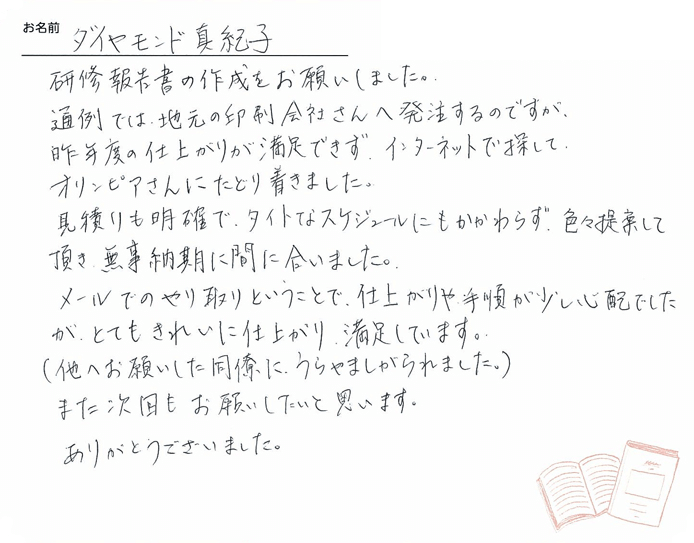 お名前 ダイヤモンド真紀子
研修報告書の作成をお願いしました。
通例では、地元の印刷会社さんへ発注するのですが、
昨年度の仕上がりが満足できず、インターネットで探して、
オリンピアさんにたどり着きました。
見積りも明確で、タイトなスケジュールにもかかわらず、色々提案して
頂き、無事納期に間に合いました。
メールでのやり取りということで、仕上がりや、手順が少し心配でした
が、とてもきれいに仕上がり、満足しています。
(他へお願いした同僚に、うらやましがられました。)
また次回もお願いしたいと思います。
ありがとうございました。